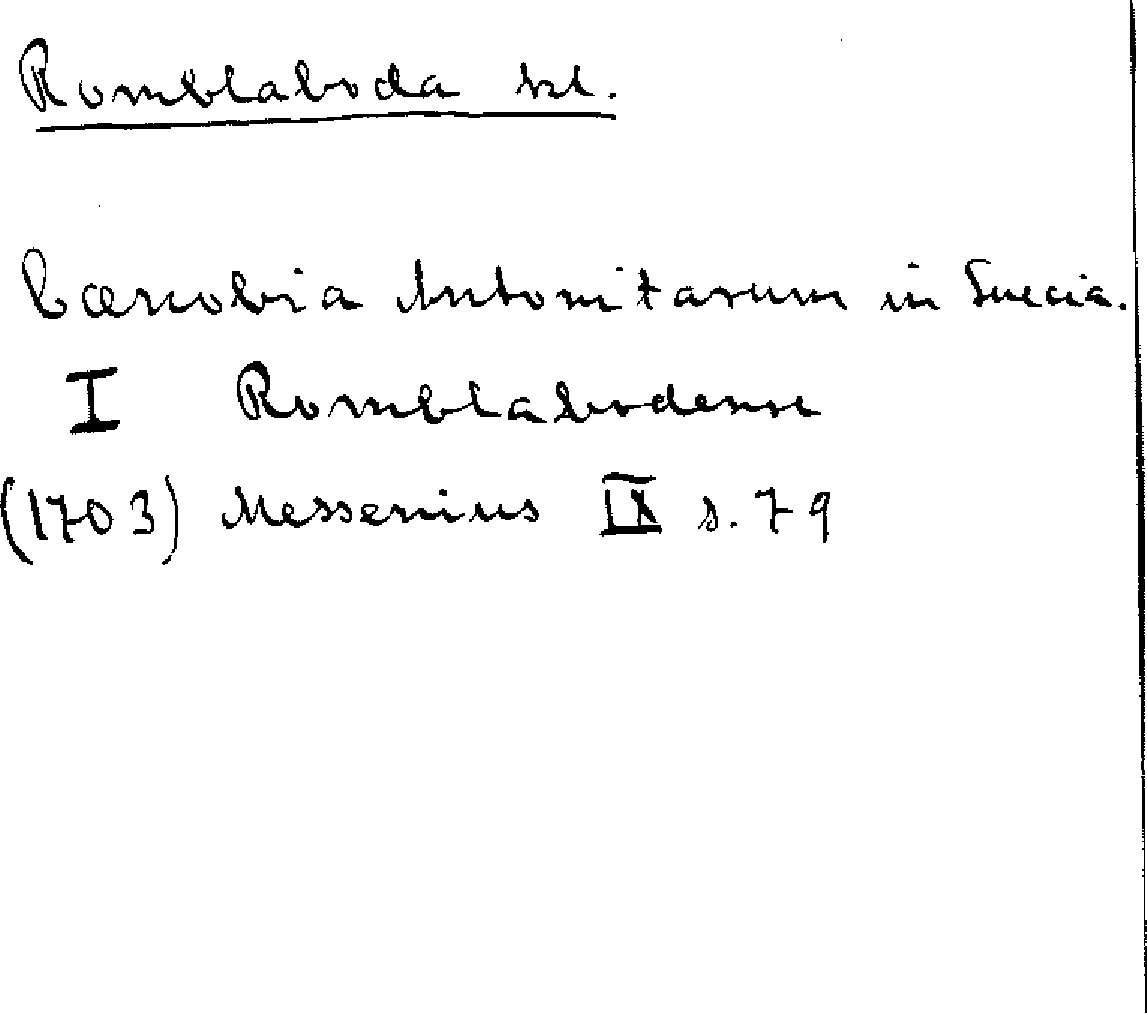 Romblaboda kl.
Cœnobia Antonitarum in Suecia.
I Romblabodense
(1703) Messenius IX s. 79